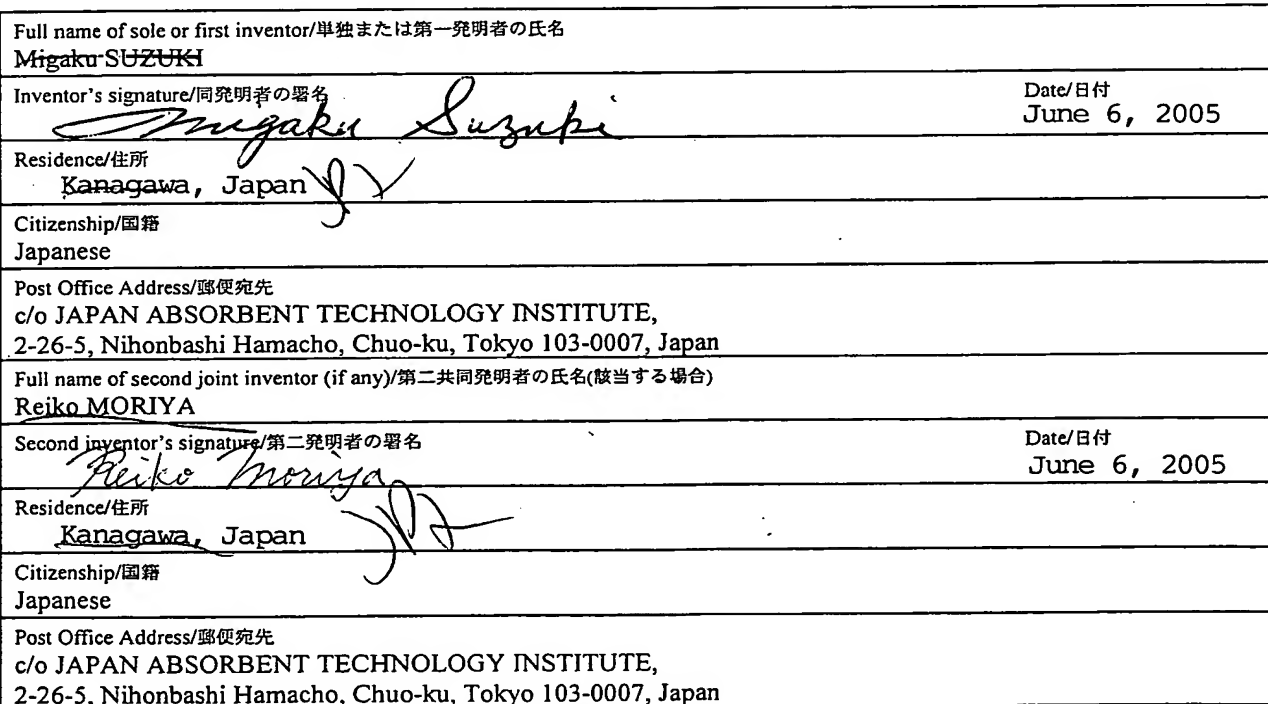 Full name of sole or first inventor/単独または第一発明者の氏名
Migaku SUZUKI
Inventor's signature/同発明者の署名
Migaku Suzuki
Date/日付
June 6, 2005
Residence/住所
Kanagawa, Japan
Citizenship/国籍
Japanese
Post Office Address/郵便宛先
c/o JAPAN ABSORBENT TECHNOLOGY INSTITUTE,
2-26-5, Nihonbashi Hamacho, Chuo-ku, Tokyo 103-0007, Japan
Full name of second joint inventor (if any)/第二共同発明者の氏名(該当する場合)
Reiko MORIYA
Second inventor's signature/第二発明者の署名
Reiko Moriya
Date/日付
June 6, 2005
Residence/住所
Kanagawa, Japan
Citizenship/国籍
Japanese
Post Office Address/郵便宛先
c/o JAPAN ABSORBENT TECHNOLOGY INSTITUTE,
2-26-5, Nihonbashi Hamacho, Chuo-ku, Tokyo 103-0007, Japan